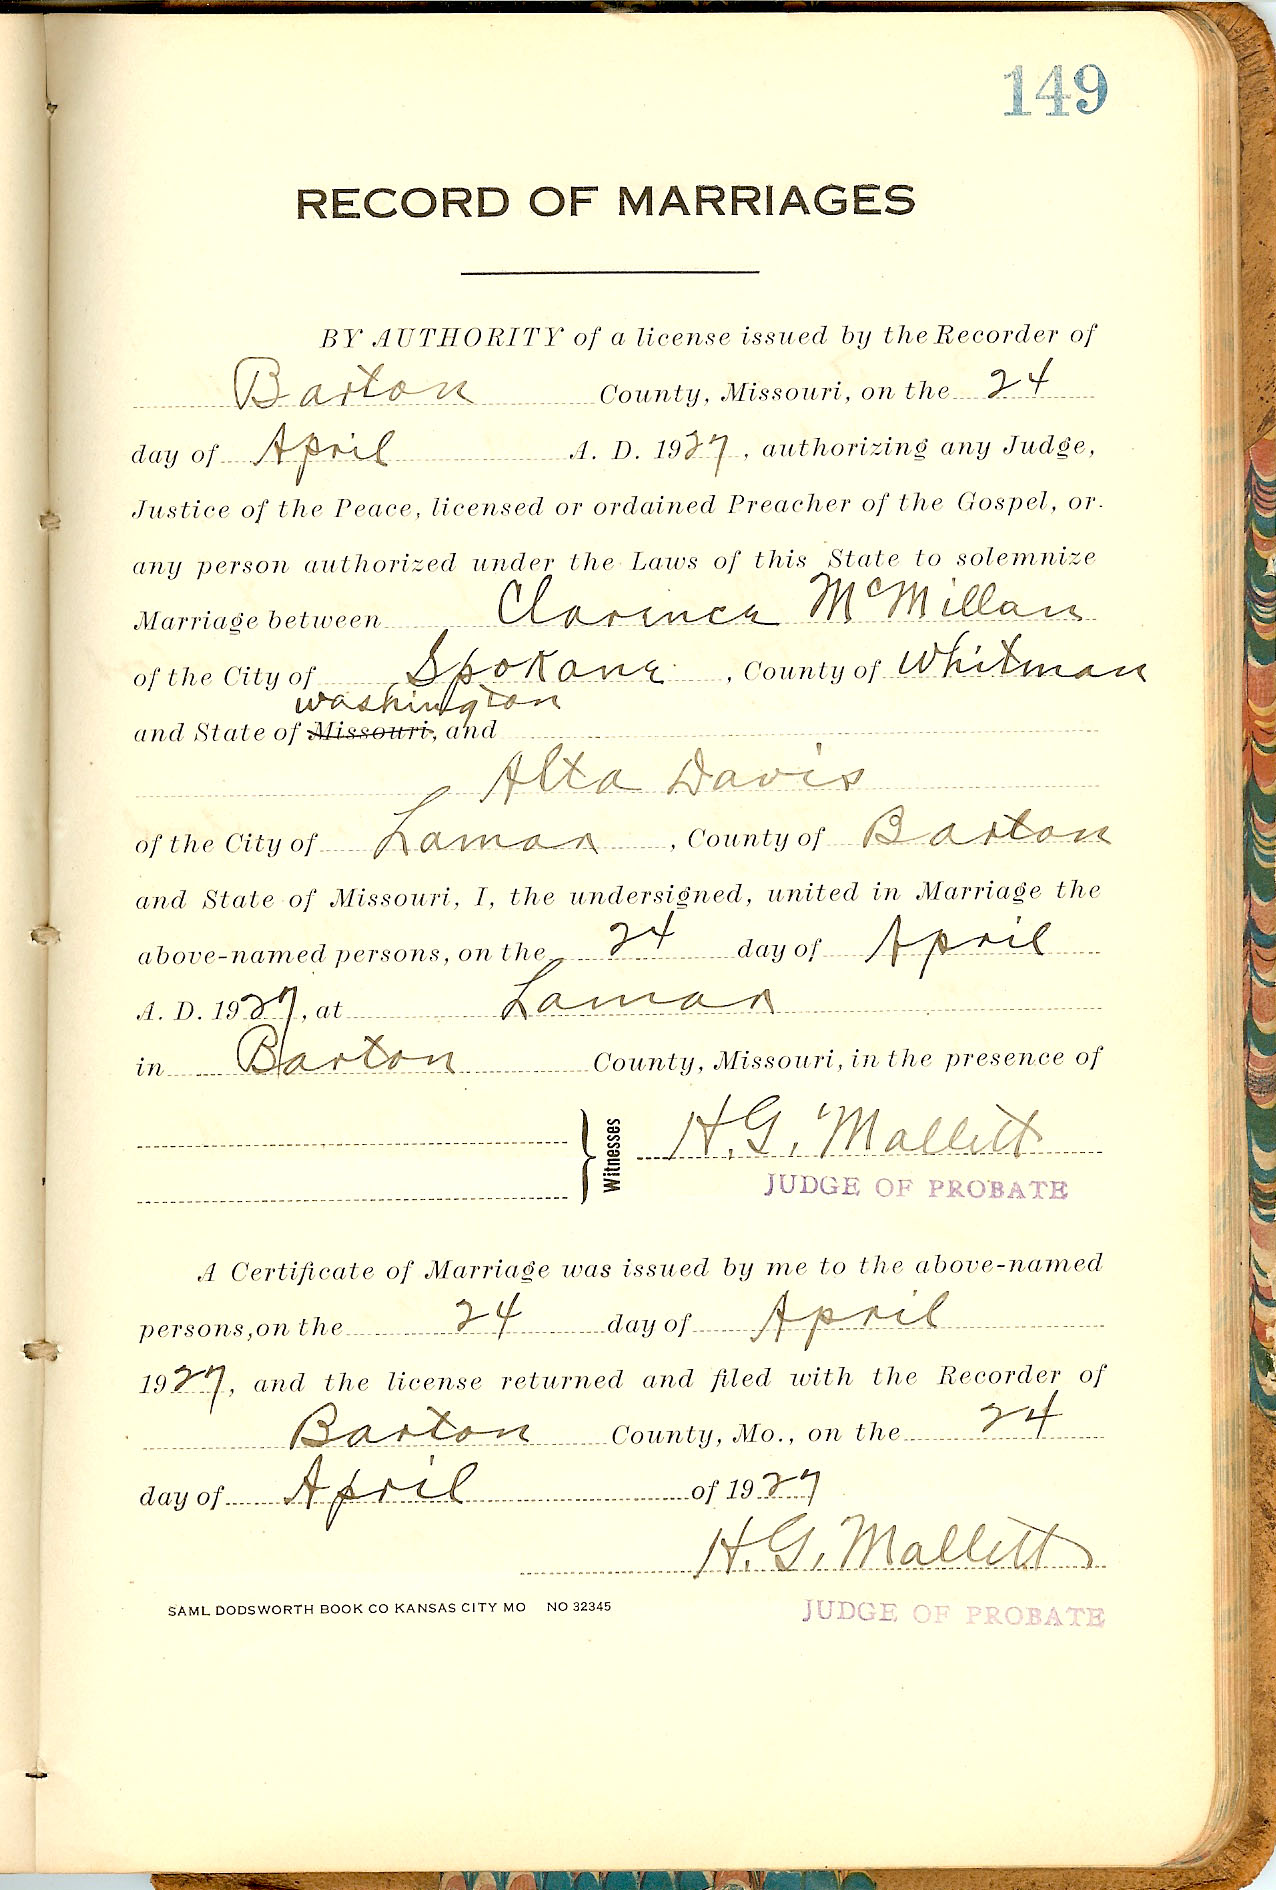 149
RECORD OF MARRIAGES
BY AUTHORITY of a license issued by the Recorder of
Barton County, Missouri, on the 24
day of April A. D. 1927, authorizing any Judge,
Justice of the Peace, licensed or ordained Preacher of the Gospel, or
any person authorized under the Laws of this State to solemnize
Marriage between Clarence McMillan
of the City of Spokane, County of Whitman
washington
and State of Missouri, and
Alta Davis
of the City of Lamar, County of Barton
and State of Missouri, I, the undersigned, united in Marriage the
above-named persons, on the 24 day of April
A. D. 1927, at Lamar
in Barton County, Missouri, in the presence of
Witnesses H. G. Mallett
JUDGE OF PROBATE
A Certificate of Marriage was issued by me to the above-named
persons, on the 24 day of April
1927, and the license returned and filed with the Recorder of
Barton County, Mo., on the 24
day of April of 1927
H. G. Mallett
SAML DODSWORTH BOOK CO KANSAS CITY MO NO 32345
JUDGE OF PROBATE